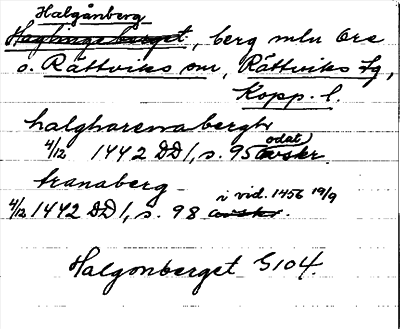 Halgånberg
Haglingeberget, berg mln Ore
o. Rättviks snr, Rättviks tg,
Kopp. l.
halgharenabergh
4/12 1442 DD 1, s. 95 odat) avskr.
tranaberg
4/12 1442 DD 1, s. 98 avskr. i vid. 1456 19/9
Halgonberget G104.